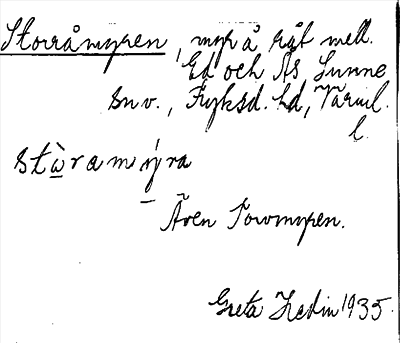 Storråmyren, myr å råt mell.
Ed och Ås Sunne
snv., Fryksd. hd, Värml.
l.
stὰramýra
Även Tovmyren.
Greta Hedin 1935.